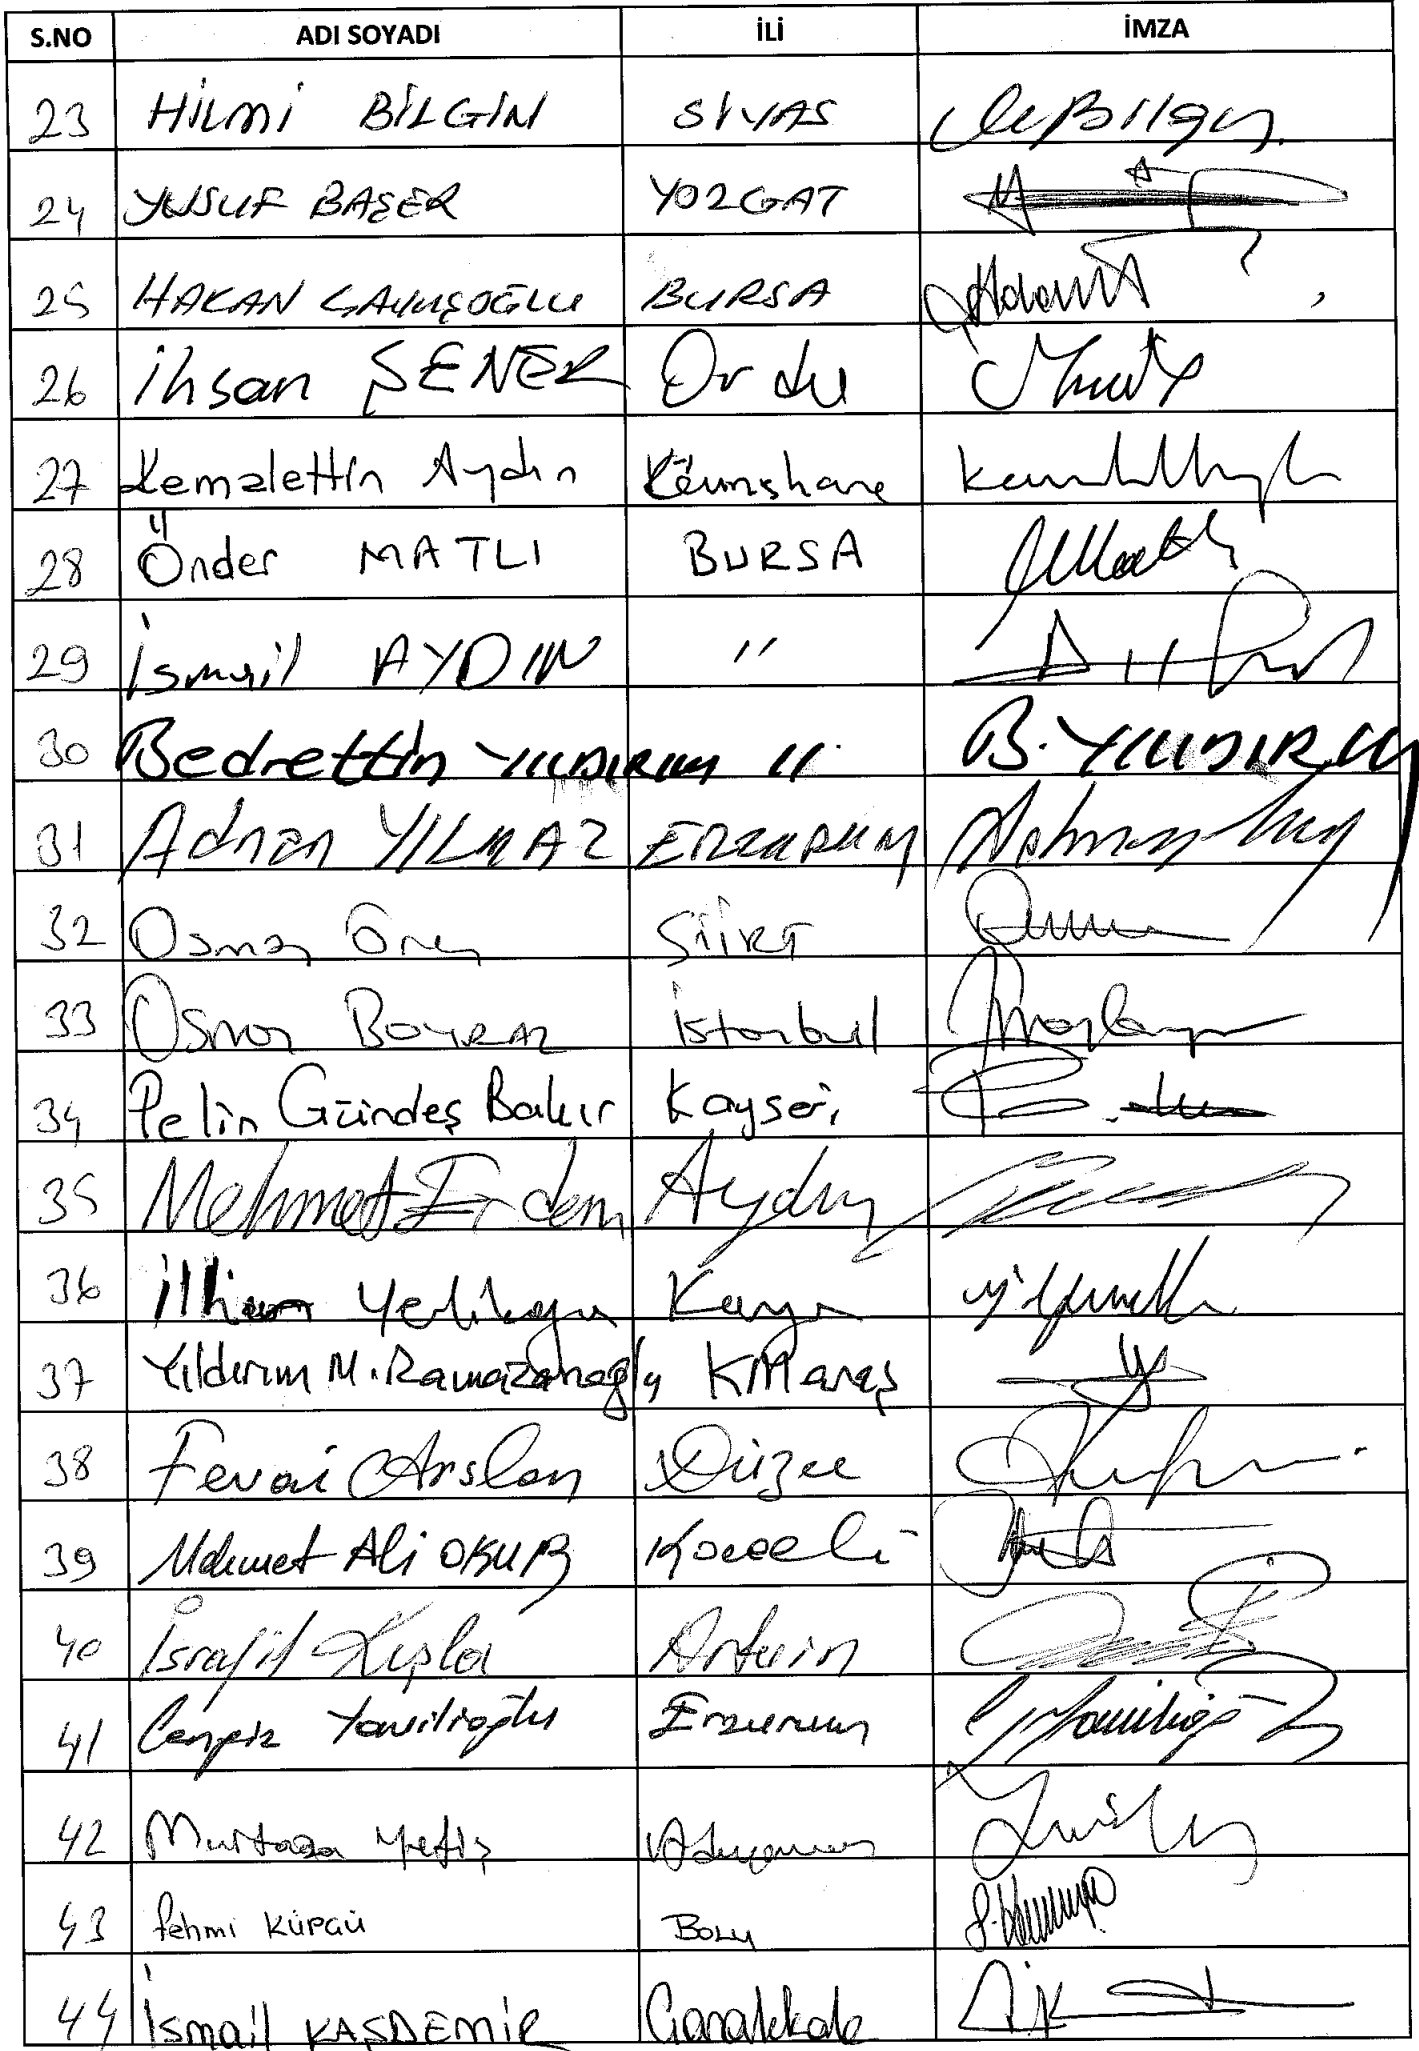 S.NO ADI SOYADI İLİ İMZA
23 HİLMİ BİLGİN SİVAS
24 YUSUF BAŞER YOZGAT
25 HAKAN ÇAVUŞOĞLU BURSA
26 İhsan ŞENER Ordu
27 Kemalettin Aydın Gümüşhane
28 Önder MATLI BURSA
29 İsmail AYDIN "
30 Bedrettin YILDIRIM " B. YILDIRIM
31 Adnan YILMAZ ERZURUM
32 Osman Ören SİİRT
33 Osman BOYRAZ İstanbul
34 Pelin Gündeş Bakır Kayseri
35 Mehmet Erdem Aydın
36 İlhan Yerlikaya Konya
37 Yıldırım M. Ramazanoğlu KMaraş
38 Fevai Arslan Düzce
39 Mehmet Ali OKUR Kocaeli
40 İsrafil Kışla Artvin
41 Cengiz Yavilioğlu Erzurum
42 Murtaza Yetiş Adıyaman
43 Fehmi KÜPÇÜ BOLU
44 İsmail KAŞDEMİR Çanakkale